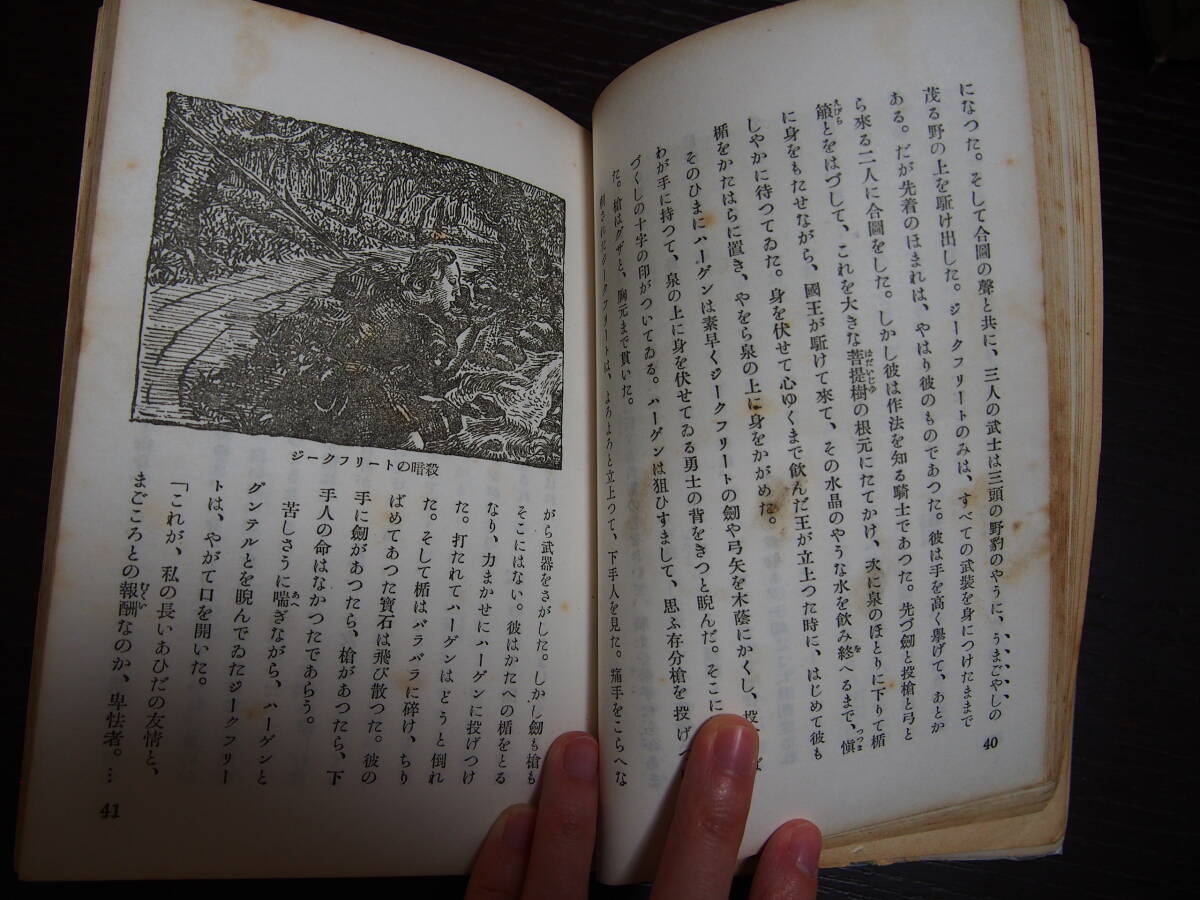 になつた。そして合圖の聲と共に、三人の武士は三頭の野豹のやうに、うまごやしの
茂る野の上を駈け出した。ジークフリートのみは、すべての武裝を身につけたままで
ある。だが先着のほまれは、やはり彼のものであつた。彼は手を高く擧げて、あとか
ら來る二人に合圖をした。しかし彼は作法を知る騎士であつた。先づ劍と投槍と弓と
箙とをはづして、これを大きな菩提樹の根元にたてかけ、次に泉のほとりに下りて楯
に身をもたせながら、國王が駈けて來て、その水晶のやうな水を飲み終へるまで、愼
しやかに待つてゐた。身を伏せて心ゆくまで飲んだ王が立上つた時に、はじめて彼も
楯をかたはらに置き、やをら泉の上に身をかがめた。
そのひまにハーゲンは素早くジークフリートの劍や弓矢を木蔭にかくし、投
わが手に持つて、泉の上に身を伏せてゐる勇士の背をきつと睨んだ。そこに
づくしの十字の印がついてゐる。ハーゲンは狙ひすまして、思ふ存分槍を投げつ
た。槍はグザと、胸元まで貫いた。
刺されたジークフリートは、よろよろと立上つて、下手人を見た。痛手をこらへな
40
ジークフリートの暗殺
がら武器をさがした。しかし劍も槍も
そこにはない。彼はかたへの楯をとる
なり、力まかせにハーゲンに投げつけ
た。打たれてハーゲンはどうと倒れ
た。そして楯はバラバラに碎け、ちり
ばめてあつた寶石は飛び散つた。彼の
手に劍があつたら、槍があつたら、下
手人の命はなかつたであらう。
苦しさうに喘ぎながら、ハーゲンと
グンテルとを睨んでゐたジークフリー
トは、やがて口を開いた。
「これが、私の長いあひだの友情と、
まごころとの報酬なのか、卑怯者。…
41